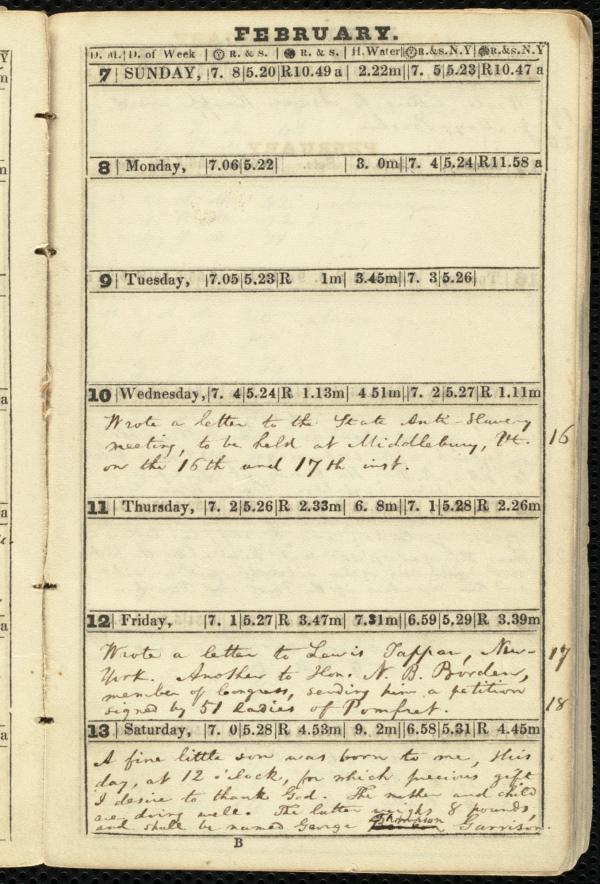 FEBRUARY.
D. M. | D. of Week | R. & s. | R. & s. | H. Water || R.&s.N.Y | R.&s.N.Y
7 | SUNDAY, | 7. 8 | 5.20 | R 10.49 a | 2.22m || 7. 5 | 5.23 | R 10.47 a
8 | Monday, | 7.06 | 5.22 | | 3. 0m || 7. 4 | 5.24 | R 11.58 a
9 | Tuesday, | 7.05 | 5.23 | R 1m | 3.45m || 7. 3 | 5.26 |
10 | Wednesday, | 7. 4 | 5.24 | R 1.13m | 4 51m || 7. 2 | 5.27 | R 1.11m
Wrote a letter to the State Anti-Slavery
meeting, to be held at Middlebury, Vt. 16
on the 16th and 17th inst.
11 | Thursday, | 7. 2 | 5.26 | R 2.33m | 6. 8m || 7. 1 | 5.28 | R 2.26m
12 | Friday, | 7. 1 | 5.27 | R 3.47m | 7.31m || 6.59 | 5.29 | R 3.39m
Wrote a letter to Lewis Tappan, New- 17
York. Another to Hon. N. B. Borden,
member of Congress, sending him a petition
signed by 51 ladies of Pomfret. 18
13 | Saturday, | 7. 0 | 5.28 | R 4.53m | 9. 2m || 6.58 | 5.31 | R 4.45m
A fine little son was born to me, this
day, at 12 o'clock, for which precious gift
I desire to thank God. The mother and child
are doing well. The latter weighs 8 pounds,
and shall be named George Thompson Garrison.
B